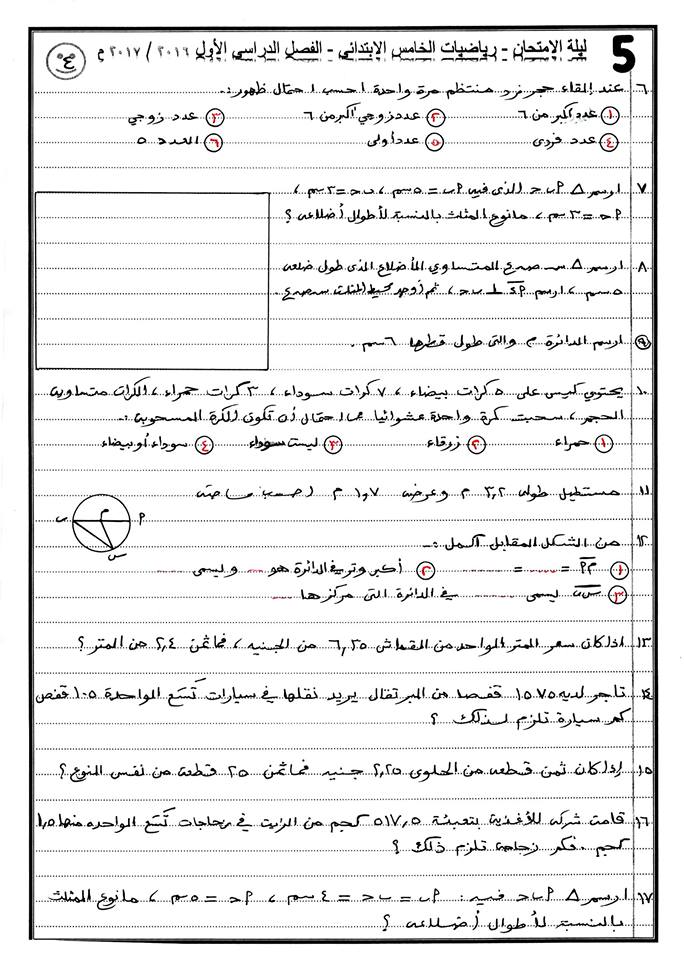 5 ليلة الإمتحان - رياضيات الخامس الإبتدائي - الفصل الدراسي الأول ٢٠١٦ / ٢٠١٧ م
٤
٦ عند إلقاء حجر نرد منتظم مرة واحدة احسب احتمال ظهور :-
١ عدد أكبر من ٦ ٢ عدد زوجي أكبر من ٦ ٣ عدد زوجي
٤ عدد فردى ٥ عدد أولى ٦ العدد ٥
٧ ارسم △ ٩ ب ح الذى فيه ٩ب = ٥ سم ، ب ح = ٣ سم ،
٩ح = ٣ سم ، مانوع المثلث بالنسبة لأطوال أضلاعه ؟
٨ ارسم △ س ص ع المتساوي الأضلاع الذى طول ضلعه
٥ سم ، ارسم ٩ء ⊥ ب ح ، ثم أوجد محيط المثلث س ص ع
٩ ارسم الدائرة م والتى طول قطرها ٦ سم .
١٠ يحتوي كيس على ٥ كرات بيضاء ، ٧ كرات سوداء ، ٣ كرات حمراء ، الكرات متساوية
الحجم ، سحبت كرة واحدة عشوائيا ما احتمال أن تكون الكرة المسحوبة :-
١ حمراء ٢ زرقاء ٣ ليست سوداء ٤ سوداء أو بيضاء
١١ مستطيل طوله ٣,٢ م وعرضه ١,٧ م احسب مساحته
١٢ من الشكل المقابل أكمل :-
٩ م س
١ ٩م = ...... = ...... ٢ أكبر وتر في الدائرة هو ... ويسمى ......
٣ يسمى ...... في الدائرة التى مركزها ....
١٣ اذا كان سعر المتر الواحد من القماش ٦,٢٥ من الجنيه ، فما ثمن ٢,٤ من المتر ؟
١٤ تاجر لديه ١٥٧٥ قفصا من البرتقال يريد نقلها في سيارات تسع الواحدة ١٠٥ قفص
كم سيارة تلزم لذلك ؟
١٥ إذا كان ثمن قطعه من الحلوى ٢,٢٥ جنيه فما ثمن ٢٥ قطعه من نفس النوع ؟
١٦ قامت شركه للأغذية بتعبئة ٥١٧,٥ كجم من الزيت في زجاجات تسع الواحده منها ١,٥
كجم . فكم زجاجة تلزم ذلك ؟
١٧ ارسم △ ٩ ب ح فيه : ٩ب = ب ح = ٤ سم ، ٩ح = ٥ سم ، مانوع المثلث
بالنسبة لأطوال أضلاعه ؟